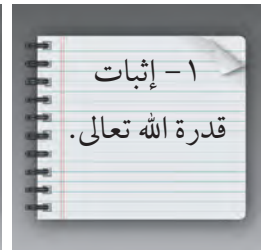 ١- إثبات
قدرة الله تعالى.